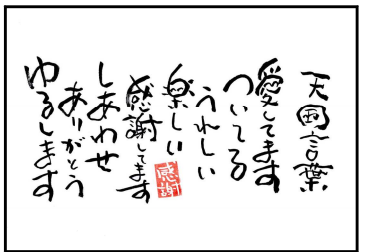 天国言葉
愛してます
ついてる
うれしい
楽しい
感謝
感謝してます
しあわせ
ありがとう
ゆるします